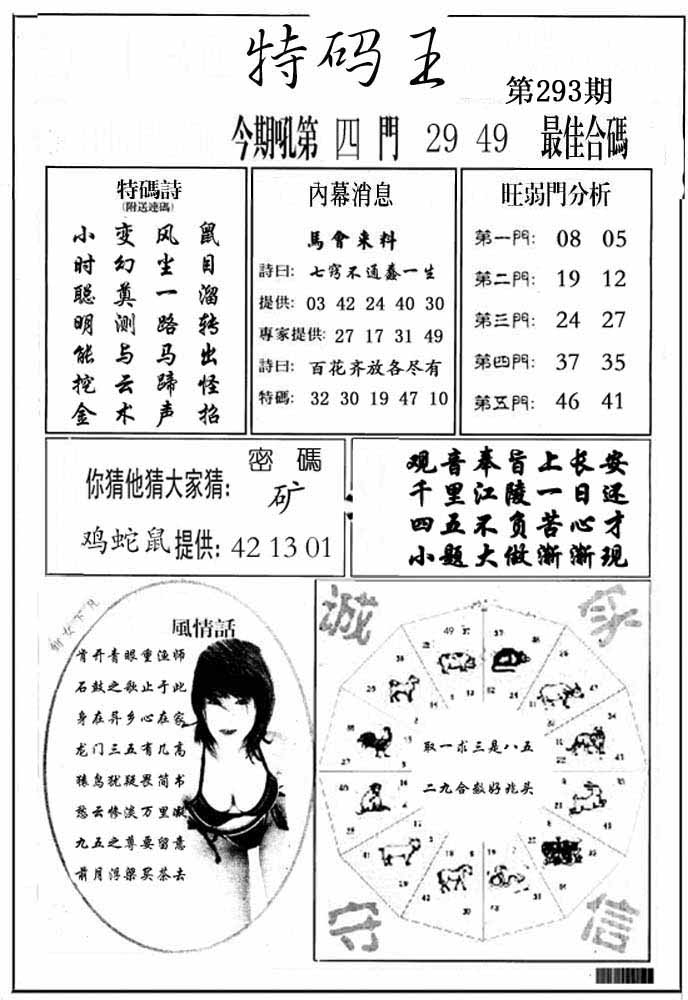 特码王
第293期
今期吼第 四 門 29 49 最佳合碼
特碼詩
(附送連碼)
小变风鼠
时幻尘目
聪奠一溜
明测路转
能与马出
挖云蹄怪
金术声招
內幕消息
馬會来料
詩曰: 七窍不通蠢一生
提供: 03 42 24 40 30
專家提供: 27 17 31 49
詩曰: 百花齐放各尽有
特碼: 32 30 19 47 10
旺弱門分析
第一門: 08 05
第二門: 19 12
第三門: 24 27
第四門: 37 35
第五門: 46 41
密碼
你猜他猜大家猜: 矿
鸡蛇鼠 提供: 42 13 01
观音奉旨上长安
千里江陵一日还
四五不负苦心才
小题大做渐渐现
仙女下凡
風情話
肯开青眼重渔师
石鼓之歌止于此
身在异乡心在家
龙门三五有几高
猿鸟犹疑畏简书
愁云惨淡万里凝
九五之尊要留意
前月浮梁买茶去
诚
守
信
取一求三是八五
二九合数好兆头